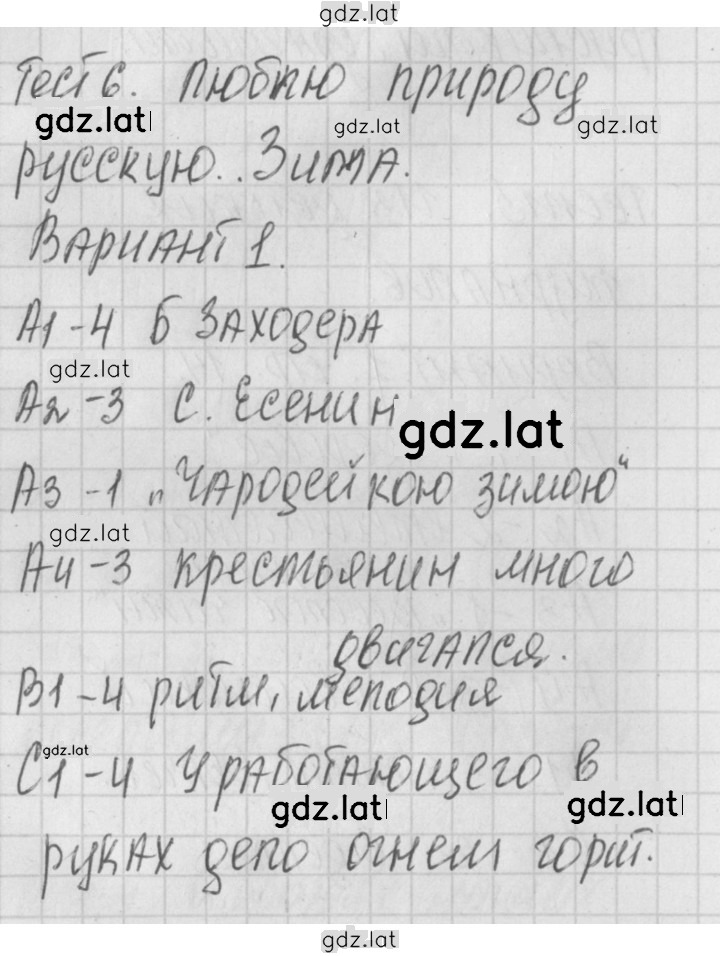 gdz.lat
Тест 6. Люблю природу
gdz.lat gdz.lat gdz.lat
русскую.. Зима.
Вариант 1.
А1-4 Б Заходера
gdz.lat
А2-3 С. Есенин
gdz.lat
А3-1 „Чародейкою зимою“
gdz.lat
А4-3 крестьянин много
двигался.
В1-4 ритм, мелодия
gdz.lat
С1-4 У работающего в
gdz.lat gdz.lat
руках дело огнем горит.
gdz.lat